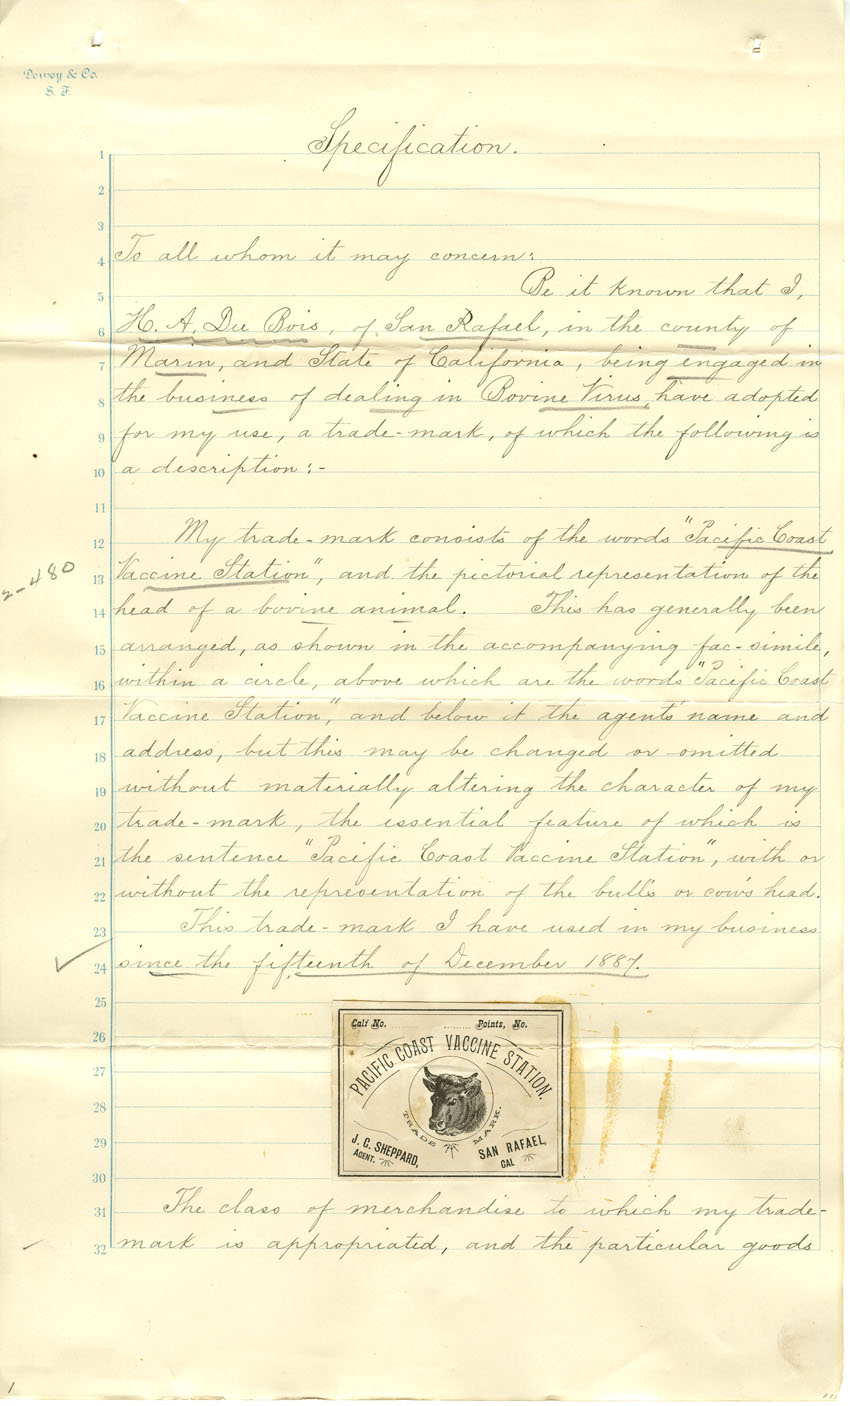 Dewey & Co.
S. F.
Specification.
1
2
3
4 To all whom it may concern:
5 Be it known that I,
6 H. A. Du Bois, of San Rafael, in the county of
7 Marin, and State of California, being engaged in
8 the business of dealing in Bovine Virus, have adopted
9 for my use, a trade-mark, of which the following is
10 a description:-
11
12 My trade-mark consists of the words "Pacific Coast
2-480
13 Vaccine Station", and the pictorial representation of the
14 head of a bovine animal. This has generally been
15 arranged, as shown in the accompanying fac-simile,
16 within a circle, above which are the words "Pacific Coast
17 Vaccine Station", and below it the agent's name and
18 address, but this may be changed or omitted
19 without materially altering the character of my
20 trade-mark, the essential feature of which is
21 the sentence "Pacific Coast Vaccine Station", with or
22 without the representation of the bull's or cow's head.
23 This trade-mark I have used in my business
24 since the fifteenth of December 1887.
25
26
27
28
29
30
Calf No. ......... Points, No.
PACIFIC COAST VACCINE STATION.
TRADE MARK.
J. C. SHEPPARD,
AGENT.
SAN RAFAEL,
CAL
31 The class of merchandise to which my trade-
32 mark is appropriated, and the particular goods
1